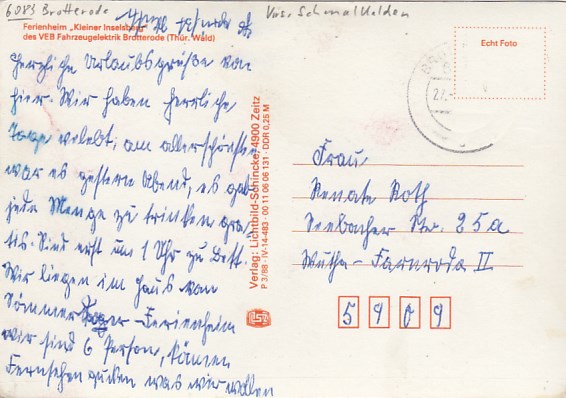 6083 Brotterode
Krs. Schmalkalden
Ferienheim „Kleiner Inselsberg"
des VEB Fahrzeugelektrik Brotterode (Thür. Wald)
Echt Foto
Herzliche Urlaubsgrüße von
hier. Wir haben herrliche
Tage erlebt, am allerschönsten
war es gestern Abend, es gab
jede Menge zu trinken gra-
tis. Sind erst um 1 Uhr zu Bett.
Wir liegen im Haus vom
Sommer Ferienheim
wir sind 6 Person, können
Fernsehen gucken was wir wollen
Verlag: Lichtbild-Schincke, 4900 Zeitz
P 3/88 · IV-14-483 · 00 11 06 06 131 · DDR 0,25 M
Frau
Renate Roth
Seebacher Str. 25a
Wutha-Farnroda II
5909